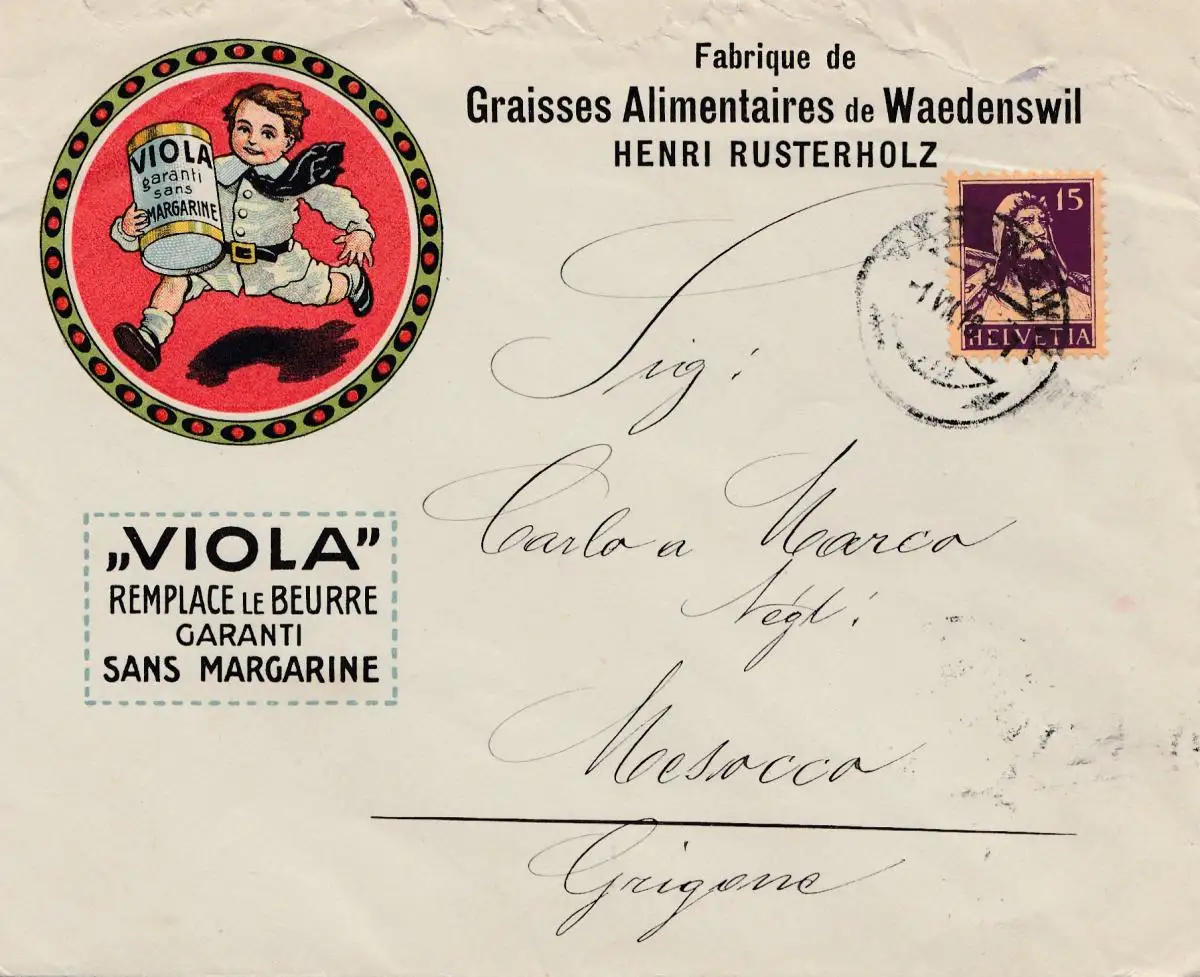 Fabrique de
Graisses Alimentaires de Waedenswil
HENRI RUSTERHOLZ
VIOLA
garanti
sans
MARGARINE
15
HELVETIA
Sig:
Carlo a Marca
Negt:
Mesocco
Grigone
„VIOLA”
REMPLACE LE BEURRE
GARANTI
SANS MARGARINE